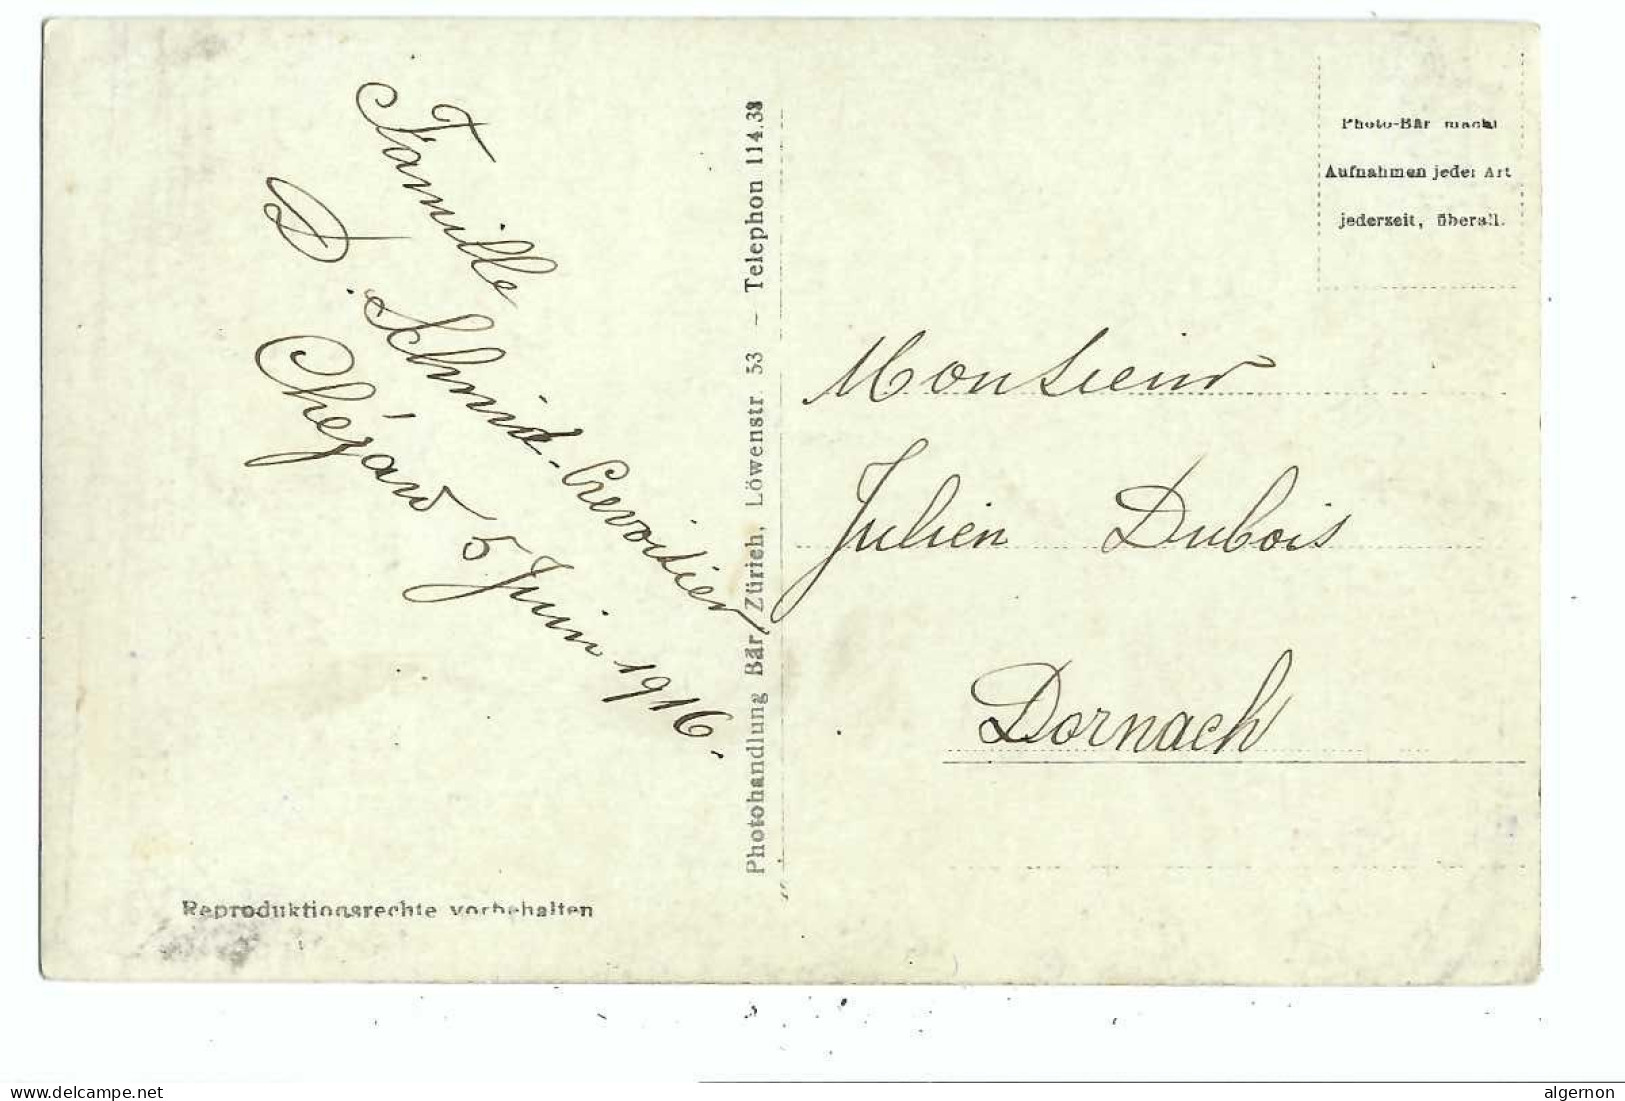 Famille
D. Schmid-Crevoisier
Chézard 5 Juin 1916.
Reproduktionsrechte vorbehalten
Photohandlung Bär, Zürich, Löwenstr. 53 – Telephon 114.38
Photo-Bär macht
Aufnahmen jeder Art
jederzeit, überall.
Monsieur
Julien Dubois
Dornach
www.delcampe.net
algernon